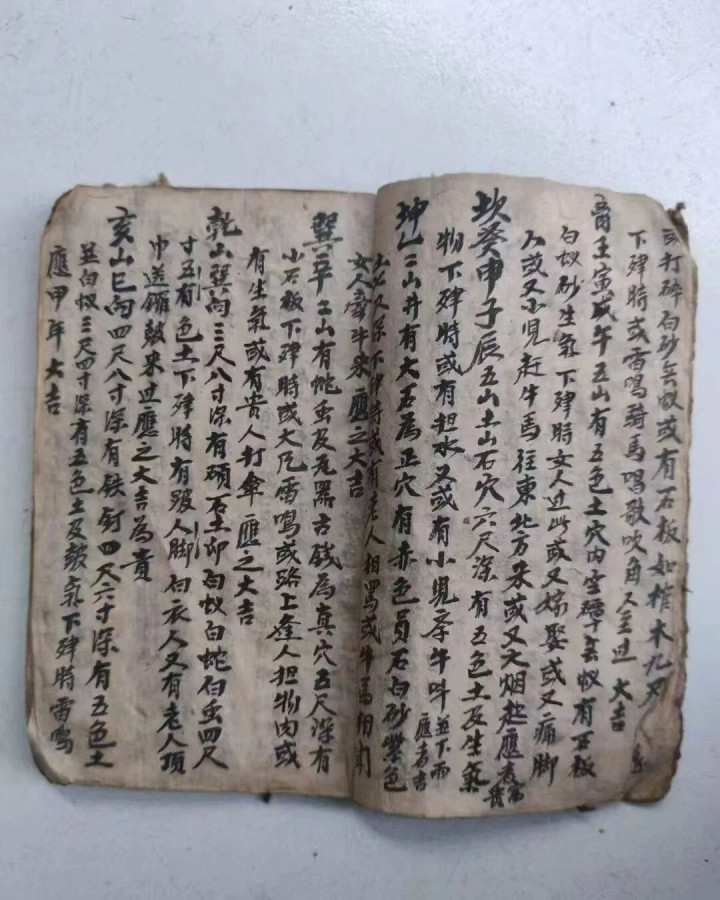 打碎白砂無蚁或有石板如棺木九刃
下肂時或雷鳴騎馬唱歌吹角人全过 大吉
壬寅戌午五山有五色土穴内空無蚁有石板
白蚁砂生氣下肂時女人过此或又嫁娶或又痛脚
人或又小児赶牛馬往東北方来或又火烟起應
坎癸申子辰五山土山石穴六尺深有五色土及生氣
物下肂時或有担水又或有小児牽牛叫並下雨應者吉
坤乙二山井有大石為正穴有赤色員石白砂紫色
土又深下肂時或有老人相罵或牛馬相
女人牽牛来應之大吉
巽辛二山有蛇虫及瓦器古錢為真穴五尺深有
小石板下肂時或大風雷鳴或路上逢人担物肉或
有生氣或有贵人打傘應之大吉
乾山巽向三尺八寸深有碩石土卯白蚁白蛇白虫四尺
寸五有色土下肂時有跛人脚白衣人又有老人頂
巾送鑼鼓来过應之大吉為貴
亥山巳向四尺八寸深有铁釘四尺六寸深有五色土
並白蚁三尺四寸深有五色土及鼓氣下肂時雷鳴
應甲年大吉